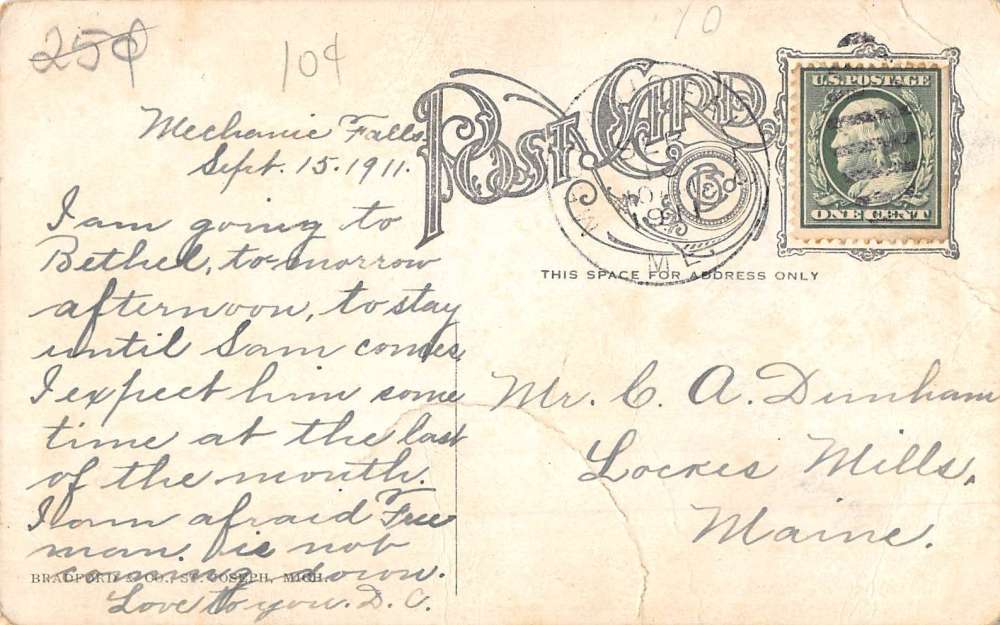 25¢
10¢
10
POST CARD
U.S. POSTAGE
ONE CENT
THIS SPACE FOR ADDRESS ONLY
Mechanic Falls
Sept. 15. 1911.
I am going to
Bethel, to-morrow
afternoon, to stay
until Sam comes,
I expect him some
time at the last
of the month.
I am afraid Free
man. is not
coming down.
Love to you. D. C.
BRADFORD & CO., ST. JOSEPH, MICH.
Mr. C. A. Dunham
Lockes Mills,
Maine.